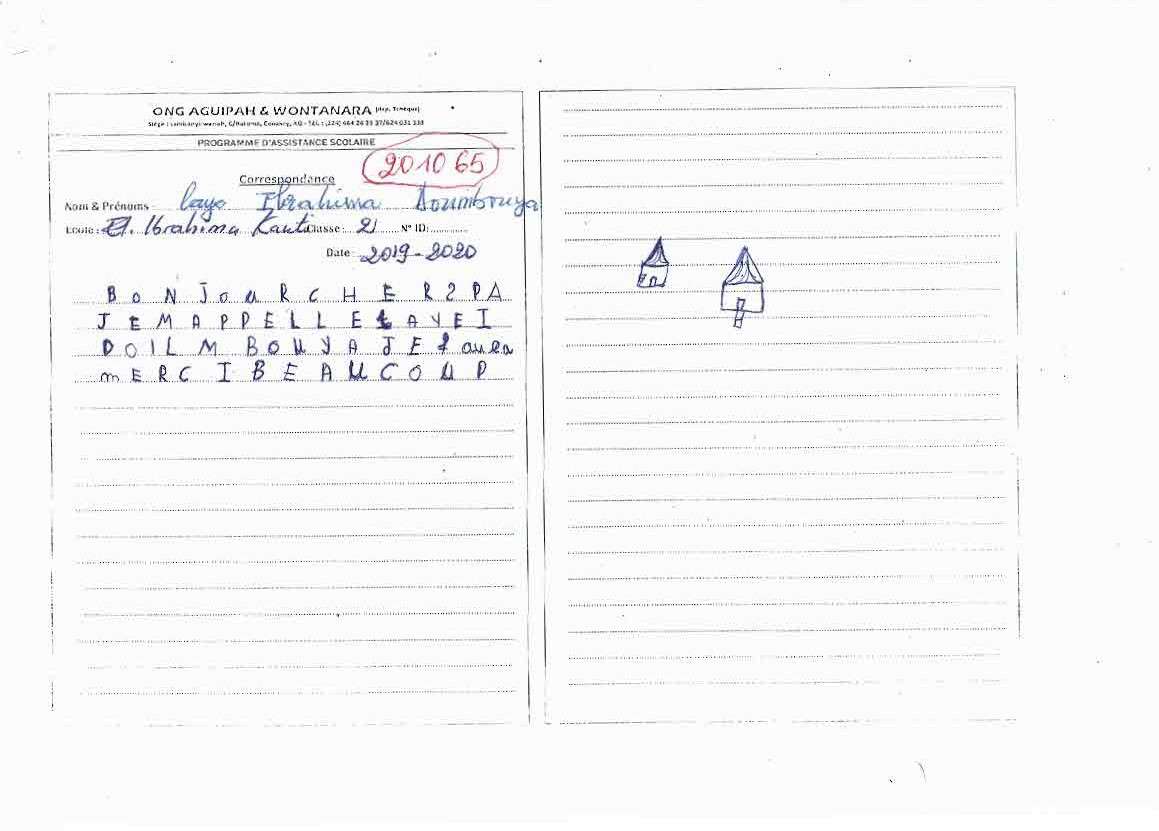 ONG AGUIPAH & WONTANARA (Rép. Tchèque)
PROGRAMME D'ASSISTANCE SCOLAIRE
201065
Correspondance
Nom & Prénoms : Laye Ibrahima Doumbouya
Ecole : E. Ibrahima Kanté Classe : 2 N° ID:
Date 2019-2020
BONJOURCHER2PA
JEMAPPELLELAYEI
DOILMBOUYAJE
mERCIBEAUCOUP